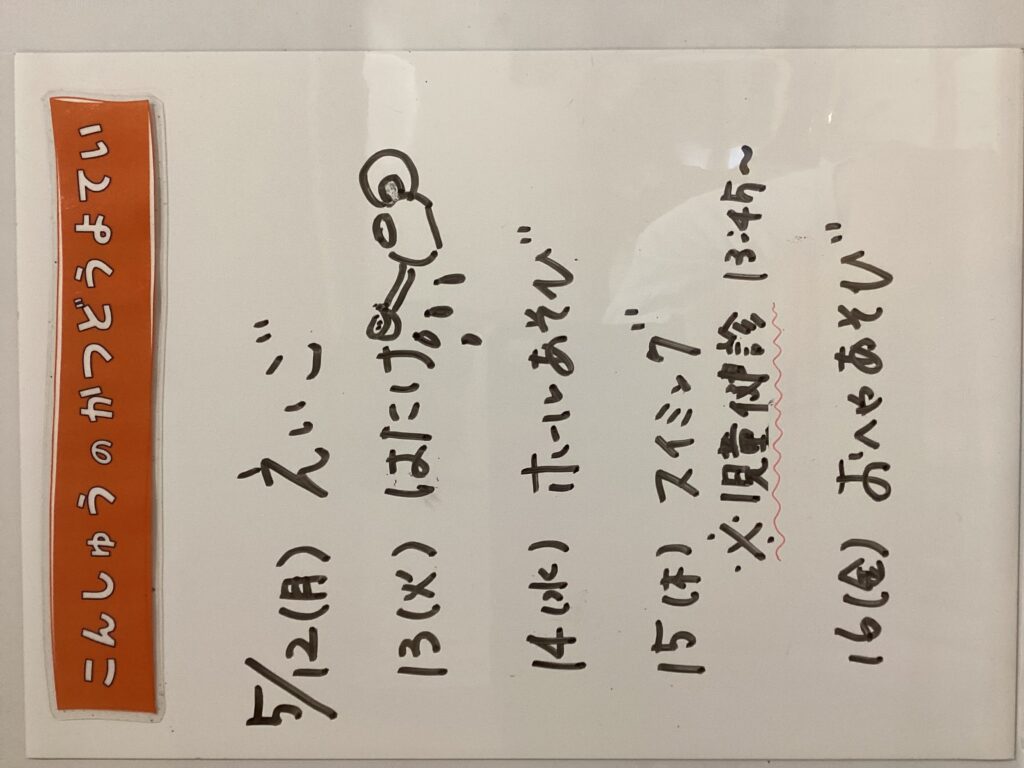 こんしゅうのかつどうよてい
5/12(月) えいご
13(火) はたけ
14(水) ホールあそび
15(木) スイミング
※児童健診 13:45〜
16(金) おへやあそび